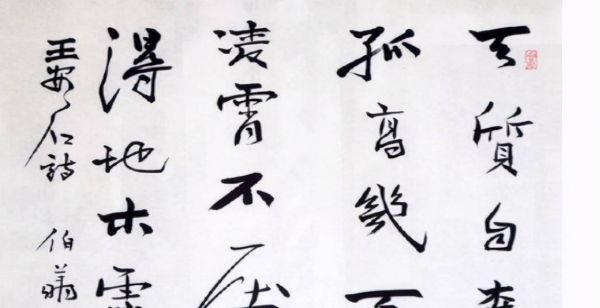 天質自森
孤高幾百
凌霄不屈
得地本虛
王安石詩 伯